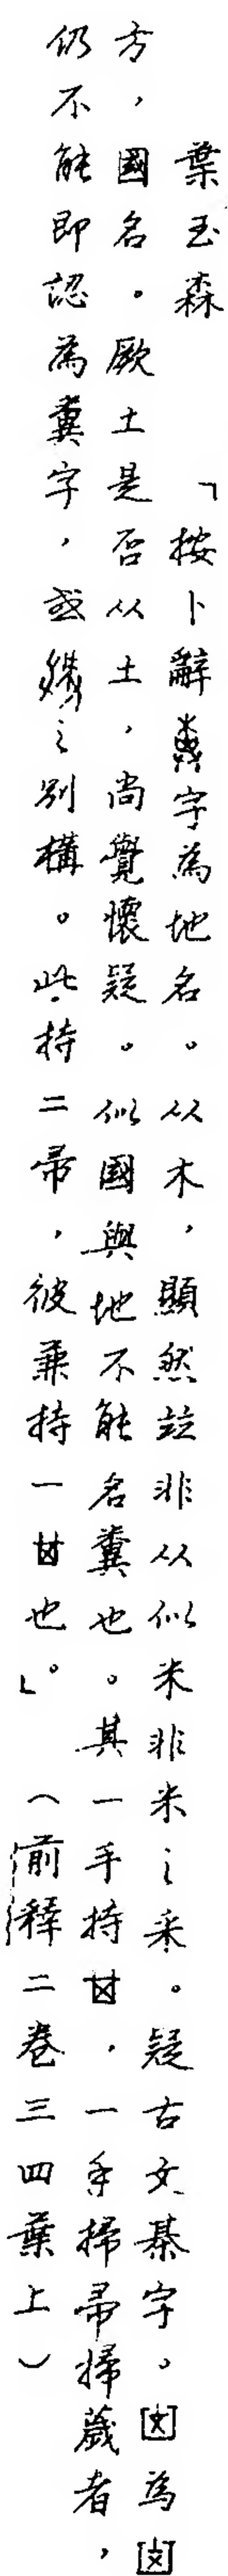 葉玉森 「按卜辭字為地名。从木，顯然竝非从似米非米之釆。疑古文棊字。為
方，國名。厥土是否从土，尚覺懷疑。似國與地不能名糞也。其一手持，一手掃帚掃薉者，
仍不能即認為糞字，或之別構。此持二帚，彼兼持一也」。（前釋二卷三四葉上）